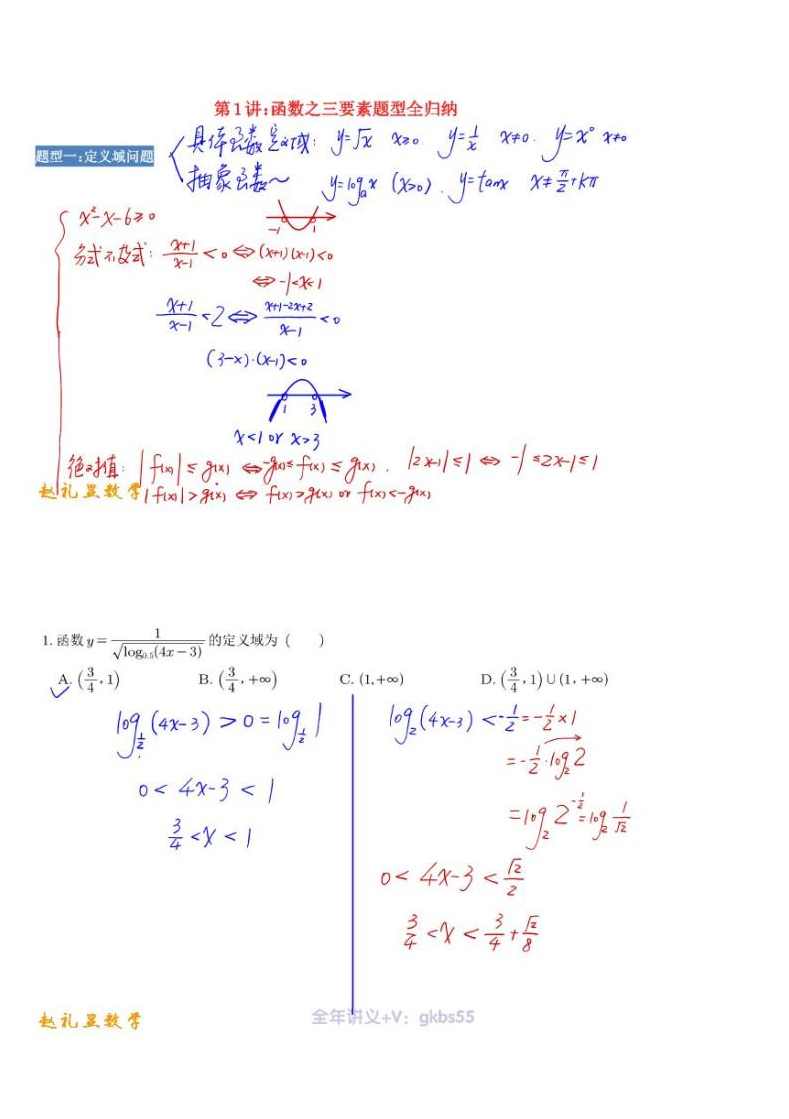 第1讲:函数之三要素题型全归纳
题型一:定义域问题
具体函数定义域: y=√x x≥0 y=1/x x≠0. y=x⁰ x≠0
抽象函数~ y=logₐx (x>0). y=tanx x≠π/2+kπ
x²-x-6≥0
-1 1
分式不等式: (x+1)/(x-1)<0⇔(x+1)(x-1)<0
⇔-1<x<1
(x+1)/(x-1)<2⇔(x+1-2x+2)/(x-1)<0
(3-x)·(x-1)<0
1 3
x<1 or x>3
绝对值: |f(x)|≤g(x) ⇔-g(x)≤f(x)≤g(x). |2x-1|≤1⇔-1≤2x-1≤1
赵礼显数学 |f(x)|>g(x) ⇔ f(x)>g(x) or f(x)<-g(x)
1. 函数 y=1/√(log₀.₅(4x-3)) 的定义域为 ( )
A. (3/4, 1) B. (3/4, +∞) C. (1,+∞) D. (3/4, 1)∪(1, +∞)
log_{1/2}(4x-3)>0=log_{1/2}1
0<4x-3<1
3/4<x<1
log₂(4x-3)<-1/2=-1/2×1
=-1/2·log₂2
=log₂2^{-1/2}=log₂1/√2
0<4x-3<√2/2
3/4<x<3/4+√2/8
赵礼显数学
全年讲义+V: gkbs55